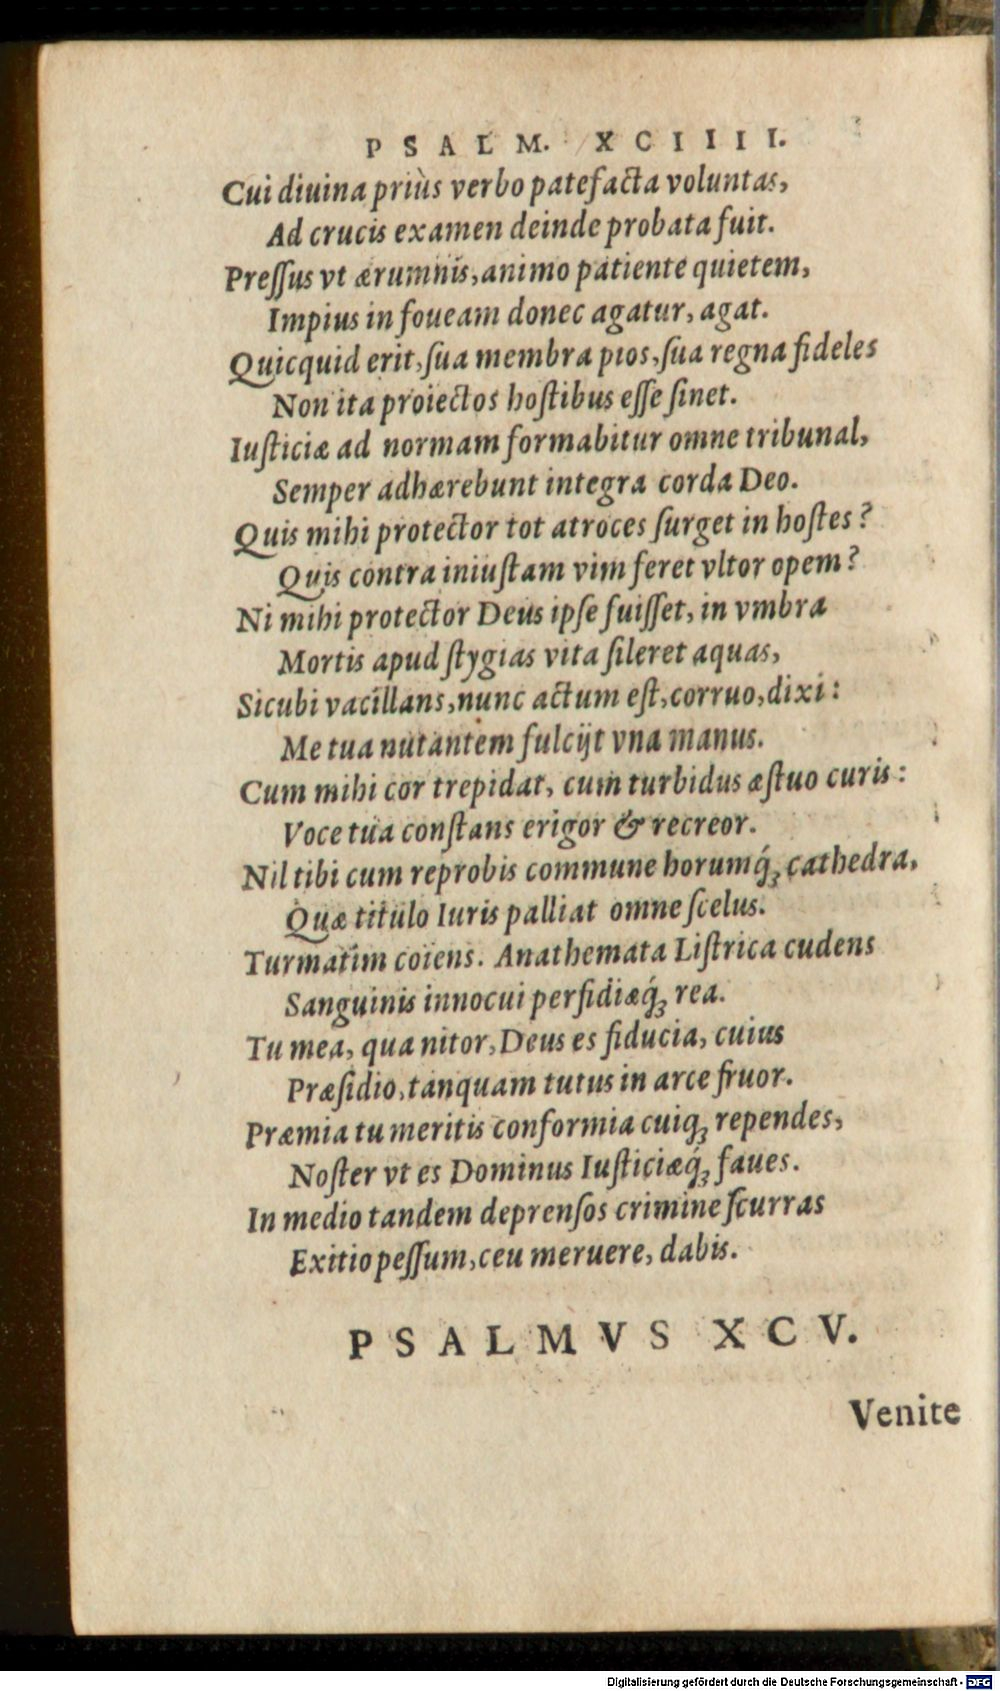 PSALM. XCIIII.
Cui diuina priùs verbo patefacta voluntas,
Ad crucis examen deinde probata fuit.
Preſſus vt ærumnis, animo patiente quietem,
Impius in foueam donec agatur, agat.
Quicquid erit, ſua membra pios, ſua regna fideles
Non ita proiectos hoſtibus eſſe ſinet.
Iuſticiæ ad normam formabitur omne tribunal,
Semper adhærebunt integra corda Deo.
Quis mihi protector tot atroces ſurget in hoſtes?
Quis contra iniuſtam vim feret vltor opem?
Ni mihi protector Deus ipſe fuiſſet, in vmbra
Mortis apud ſtygias vita ſileret aquas,
Sicubi vacillans, nunc actum eſt, corruo, dixi:
Me tua nutantem fulcijt vna manus.
Cum mihi cor trepidat, cum turbidus æſtuo curis:
Voce tua conſtans erigor & recreor.
Nil tibi cum reprobis commune horumq́ꝫ cathedra,
Quæ titulo Iuris palliat omne ſcelus.
Turmatim coiens. Anathemata Liſtrica cudens
Sanguinis innocui perfidiæq́ꝫ rea.
Tu mea, qua nitor, Deus es fiducia, cuius
Præſidio, tanquam tutus in arce fruor.
Præmia tu meritis conformia cuiqꝫ rependes,
Noſter vt es Dominus Iuſticiæq́ꝫ faues.
In medio tandem deprenſos crimine ſcurras
Exitio peſſum, ceu meruere, dabis.
PSALMVS XCV.
Venite
Digitalisierung gefördert durch die Deutsche Forschungsgemeinschaft - DFG